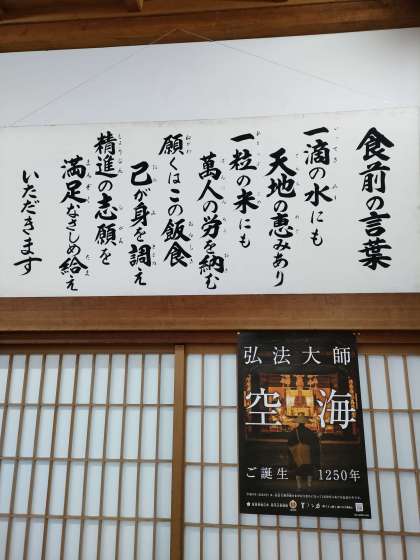 食前の言葉
一滴の水にも
天地の恵みあり
一粒の米にも
萬人の労を納む
願くはこの飯食
己が身を調え
精進の志願を
満足なさしめ給え
いただきます
弘法大師
空海
ご誕生 1250年